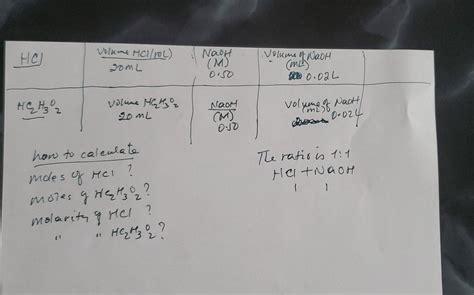 HCl Volume HCl(mL) NaOH Volume of NaOH
20mL (M) (mL)
0.50 0.02L
HC2H3O2 Volume HC2H3O2 NaOH Volume of NaOH
20 mL (M) (mL)
0.50 0.02L
how to calculate
moles of HCl ?
moles of HC2H3O2 ?
molarity of HCl ?
" " HC2H3O2 ?
The ratio is 1:1
HCl + NaOH
1 1